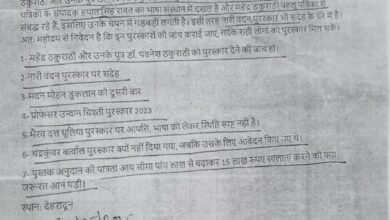 पत्रिका के संपादक हयात सिंह रावत का भाषा संस्थान में दखल है और महेंद्र ठकुराठी पहलू पत्रिका से
संबद्ध रहे हैं, इसलिए उनके चयन में गड़बड़ी लगती है। इसी तरह नारी वंदन पुरस्कार भी संदेह के घेरे में है।
अतः महोदय से निवेदन है कि इन पुरस्कारों की जांच कराई जाए, ताकि सही लोगों को पुरस्कार मिल सकें।
1- महेंद्र ठकुराठी और उनके पुत्र डॉ. पवनेश ठकुराठी को पुरस्कार देने की जांच हो।
2-नारी वंदन पुरस्कार पर संदेह
3-मदन मोहन डुकलान को दूसरी बार
4- प्रोफेसर उन्वान चिश्ती पुरस्कार 2023
5-भैरव दत्त धूलिया पुरस्कार पर आपत्ति, भाषा को लेकर स्थिति स्पष्ट नहीं है।
6- चन्द्रकुंवर बर्त्वाल पुरस्कार क्यों नहीं दिया गया, जबकि उसके लिए आवेदन किए गए थे।
7- पुस्तक अनुदान की पात्रता आय सीमा पांच लाख से बढ़ाकर 15 लाख रुपए सालाना करने की क्या
जरूरत आन पड़ी।
स्थान: देहरादून